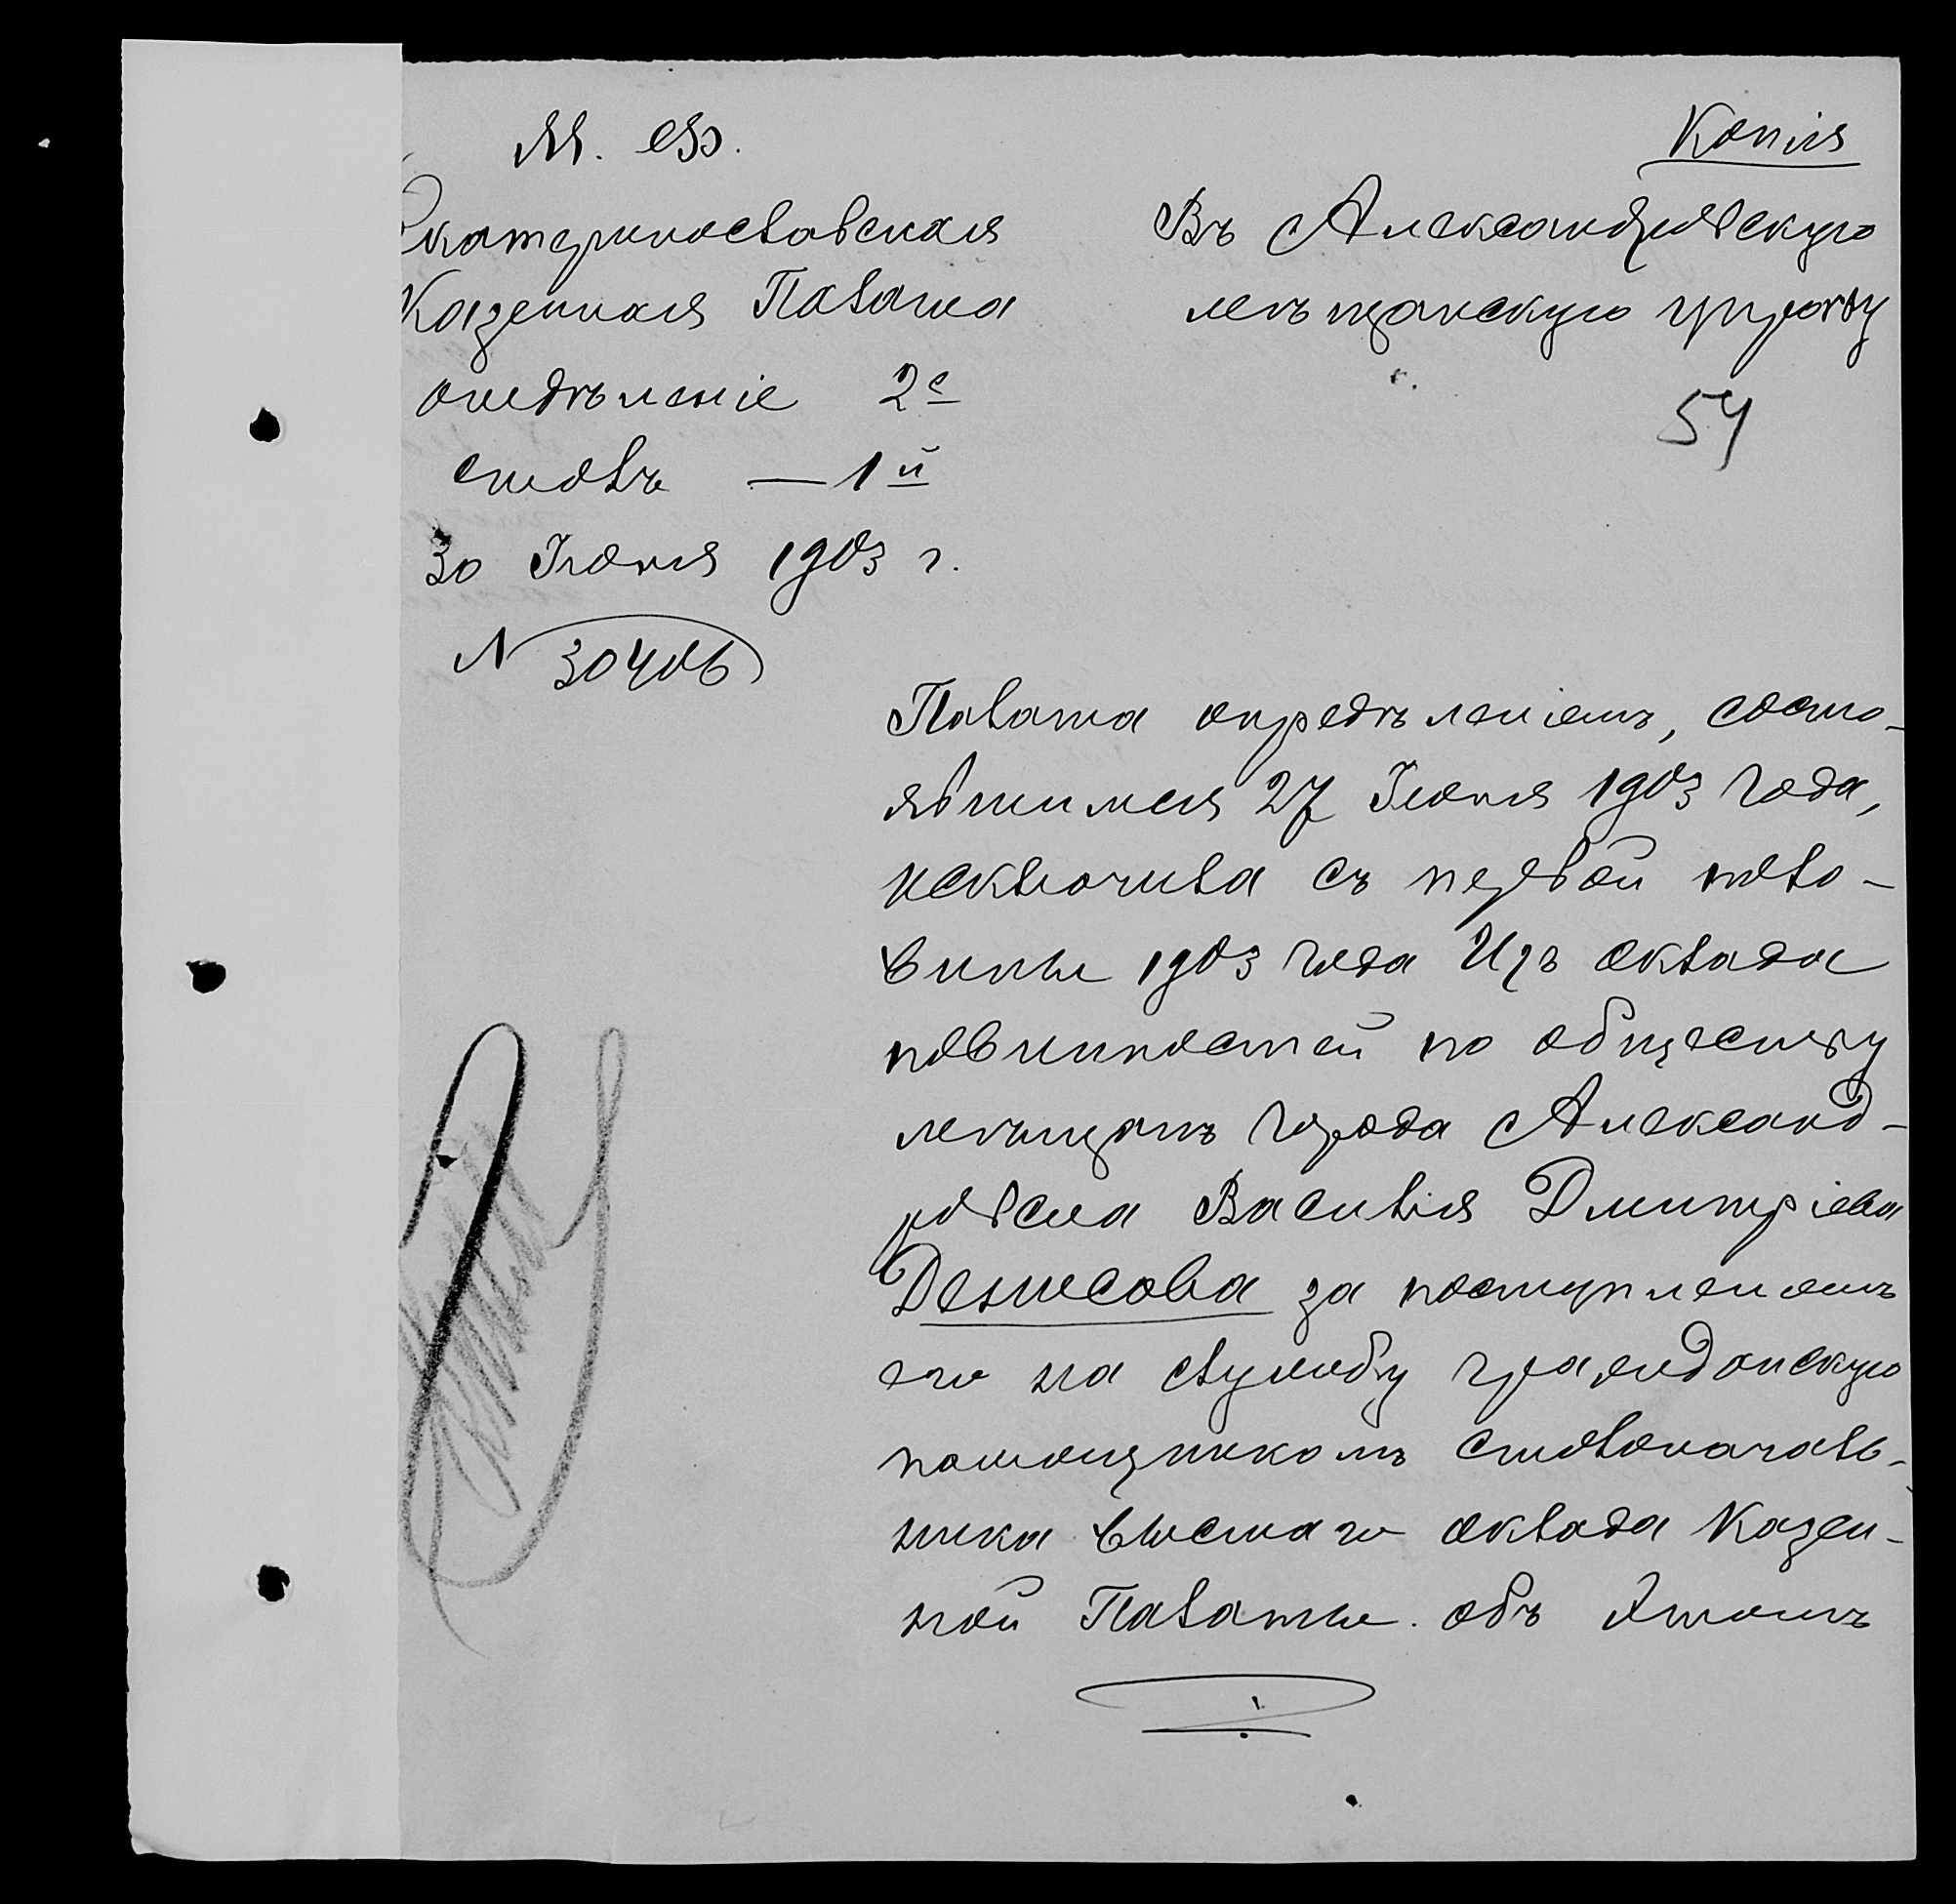 М. Ф.
Копія
Екатеринославская
Казенная Палата
отдѣленіе 2е
столъ — 1й
30 Іюня 1903 г.
N 30406
Въ Александровскую
мѣщанскую управу
54
Палата опредѣленіемъ, состо-
явшимся 27 Іюня 1903 года,
исключила съ первой поло-
вины 1903 года изъ оклада
повинностей по обществу
мѣщанъ города Александ-
ровска Василія Дмитріева
Денисова за поступленіемъ
его на службу гражданскую
помощникомъ столоначаль-
ника высшаго оклада Казен-
ной Палаты. объ этомъ